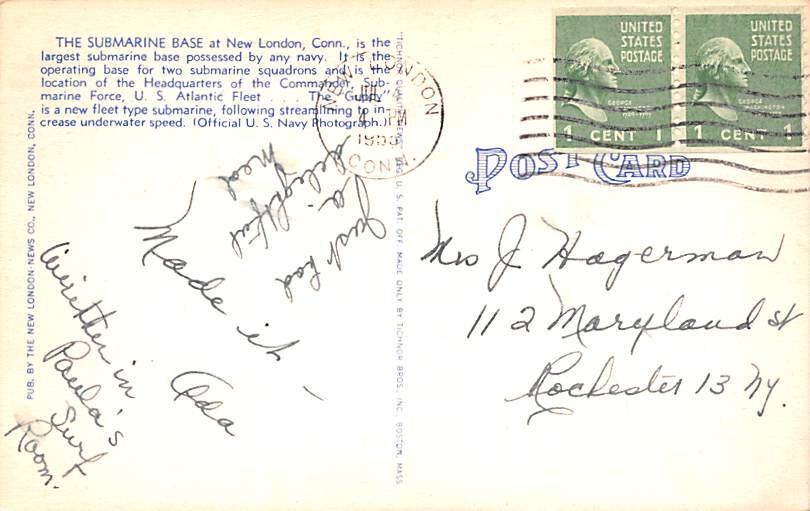 THE SUBMARINE BASE at New London, Conn., is the
largest submarine base possessed by any navy. It is the
operating base for two submarine squadrons and is the
location of the Headquarters of the Commander, Sub-
marine Force, U. S. Atlantic Fleet . . . The "Guppy"
is a new fleet type submarine, following streamlining to in-
crease underwater speed. (Official U. S. Navy Photograph.)
PUB. BY THE NEW LONDON-NEWS CO., NEW LONDON, CONN.
REG. U. S. PAT. OFF. MADE ONLY BY TICHNOR BROS., INC., BOSTON, MASS.
NEW LONDON
JUL
PM
CONN.
UNITED
STATES
POSTAGE
GEORGE
WASHINGTON
1 CENT 1
UNITED
STATES
POSTAGE
GEORGE
WASHINGTON
1 CENT 1
POST CARD
Made it –
Ada
Just had
a
delightful
meal
written in
Paula's
Surf
Room.
Mrs J. Hagerman
112 Maryland St
Rochester 13 Ny.